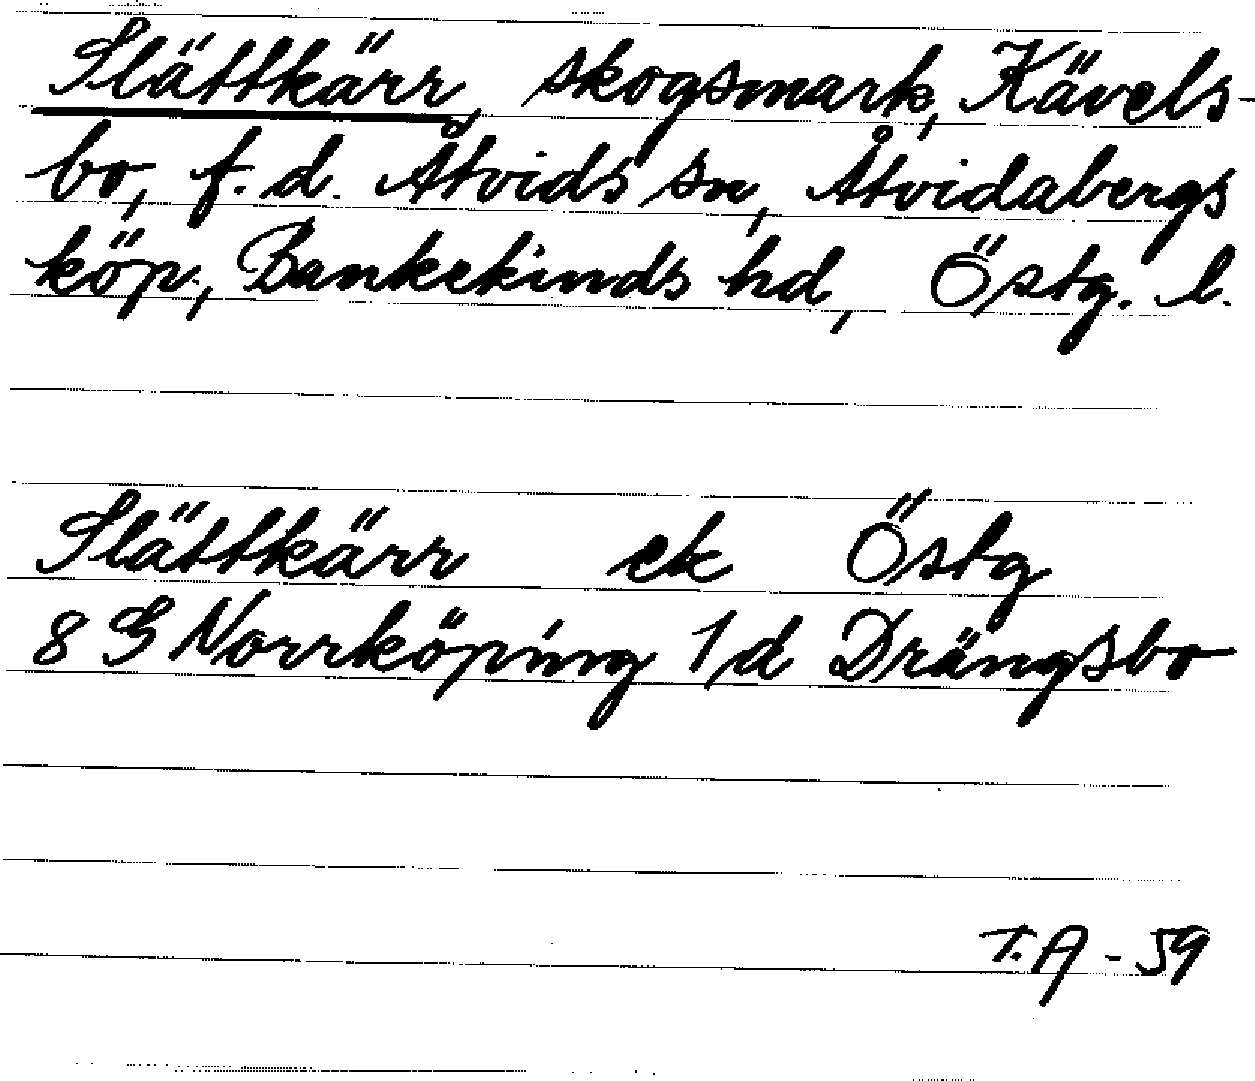 Slättkärr, skogsmark, Kävels-
bo, f. d. Åtvids sn, Åtvidabergs
köp., Bankekinds hd, Östg. l.
Slättkärr ek Östg
8 G Norrköping 1/d Drängsbo
T. A - 59